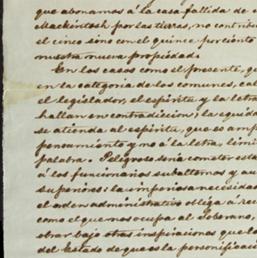 que abonamos á la casa fallida de
Mackintosh por las tierras, no contribu
el cinco sino con el quince por ciento
nuestra nueva propiedad.
En los casos como el presente, qu
en la categoria de los comunes, cal
el legislador, el espíritu y la letra
hallan en contradiccion; la equida
se atienda al espíritu, que es amp
pensamiento y no á la letra, limi
palabra. Peligroso seria cometer esta
á los funcionarios subalternos y au
superiores: la imperiosa necesidad
el orden administrativo obliga á rec
como el que nos ocupa al Soberano,
obrar bajo otras inspiraciones que la
del Estado de que es la personificaci